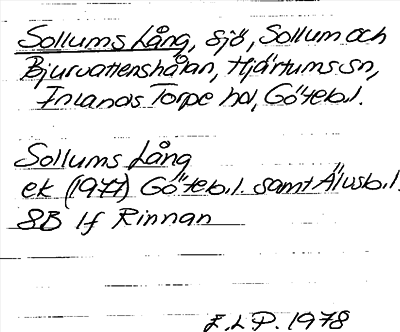 Sollums Lång, sjö, Sollum och
Bjurvattenshålan, Hjärtums sn,
Inlands Torpe hd, Göteb.l.
Sollums Lång
ek (1977) Göteb.l. samt Älvsb.l.
8B lf Rinnan
E.L.P. 1978